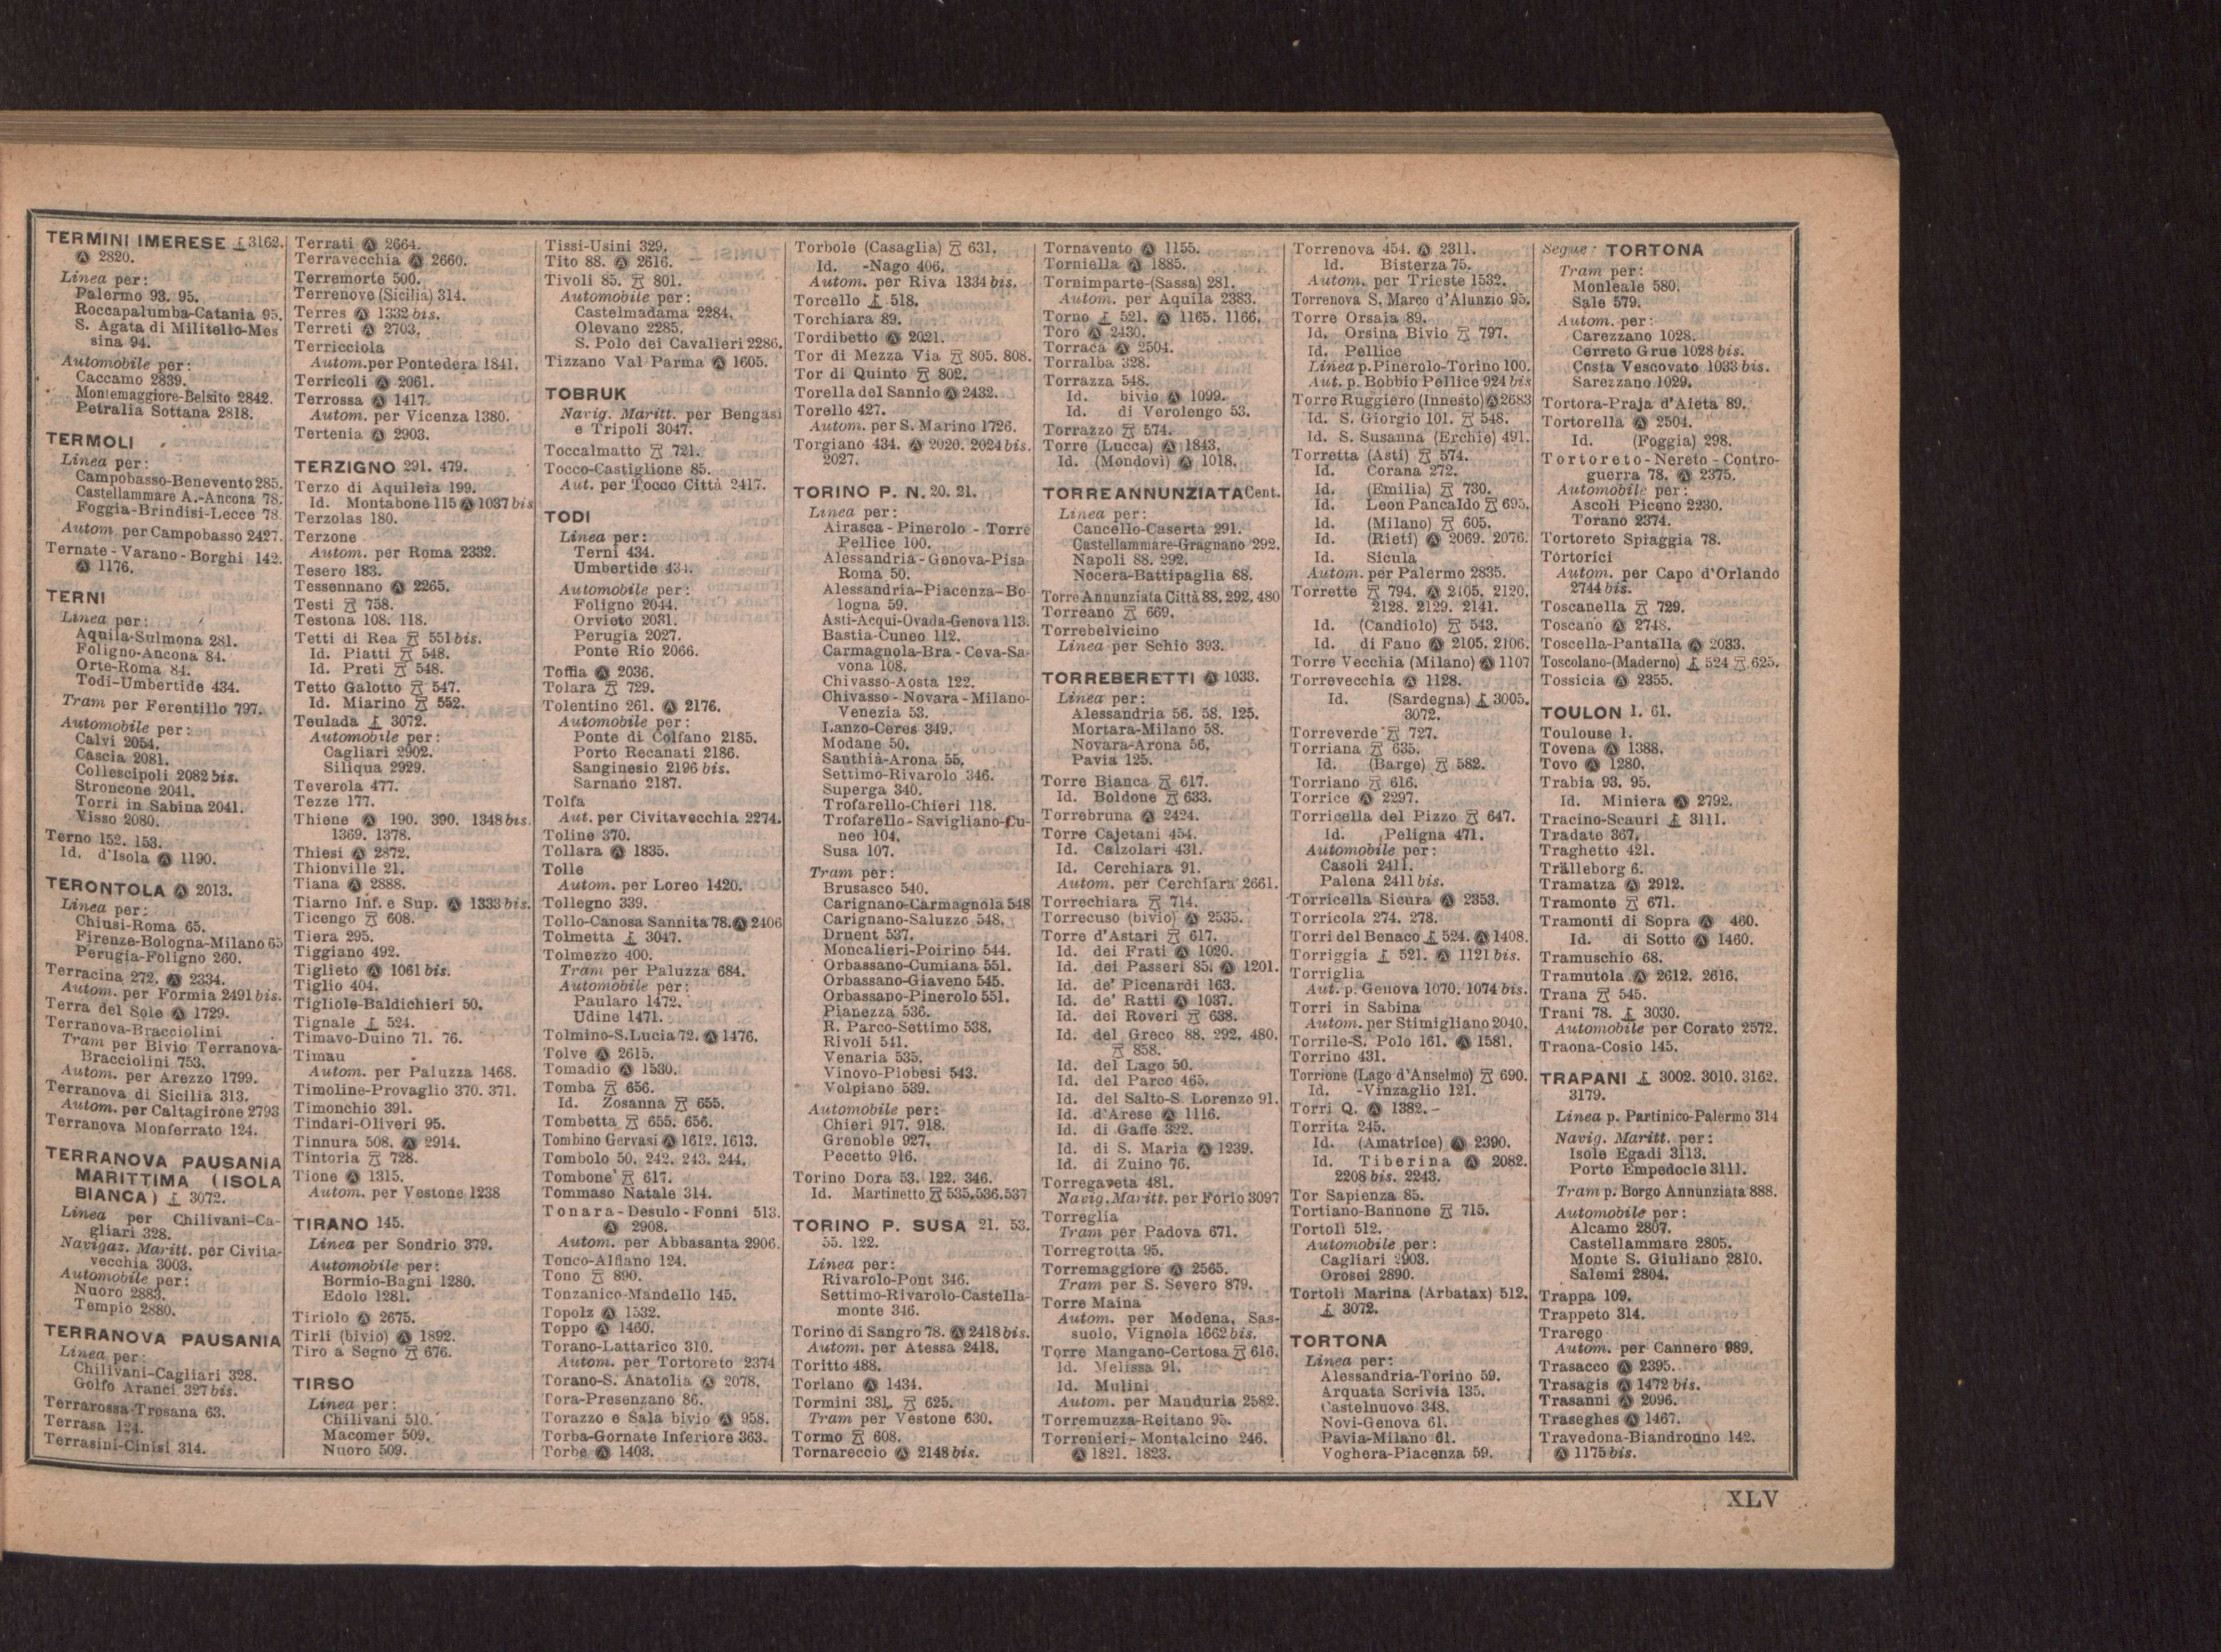 TERMINI IMERESE ⚓ 3162.
Ⓐ 2820.
Linea per:
Palermo 93. 95.
Roccapalumba-Catania 95.
S. Agata di Militello-Mes
sina 94.
Automobile per:
Caccamo 2839.
Montemaggiore-Belsito 2842.
Petralia Sottana 2818.
TERMOLI
Linea per:
Campobasso-Benevento 285.
Castellammare A.-Ancona 78.
Foggia-Brindisi-Lecce 78.
Autom. per Campobasso 2427.
Ternate-Varano-Borghi 142.
Ⓐ 1176.
TERNI
Linea per:
Aquila-Sulmona 281.
Foligno-Ancona 84.
Orte-Roma 84.
Todi-Umbertide 434.
Tram per Ferentillo 797.
Automobile per:
Calvi 2054.
Cascia 2081.
Collescipoli 2082 bis.
Stroncone 2041.
Torri in Sabina 2041.
Visso 2080.
Terno 152. 153.
Id. d'Isola Ⓐ 1190.
TERONTOLA Ⓐ 2013.
Linea per:
Chiusi-Roma 65.
Firenze-Bologna-Milano 65
Perugia-Foligno 260.
Terracina 272. Ⓐ 2334.
Autom. per Formia 2491 bis.
Terra del Sole Ⓐ 1729.
Terranova-Bracciolini
Tram per Bivio Terranova-
Bracciolini 753.
Autom. per Arezzo 1799.
Terranova di Sicilia 313.
Autom. per Caltagirone 2793
Terranova Monferrato 124.
TERRANOVA PAUSANIA
MARITTIMA (ISOLA
BIANCA) ⚓ 3072.
Linea per Chilivani-Ca-
gliari 328.
Navigaz. Maritt. per Civita-
vecchia 3003.
Automobile per:
Nuoro 2883.
Tempio 2880.
TERRANOVA PAUSANIA
Linea per:
Chilivani-Cagliari 328.
Golfo Aranci 327 bis.
Terrarossa-Tresana 63.
Terrasa 124.
Terrasini-Cinisi 314.
Terrati Ⓐ 2664.
Terravecchia Ⓐ 2660.
Terremorte 500.
Terrenove (Sicilia) 314.
Terres Ⓐ 1332 bis.
Terreti Ⓐ 2703.
Terricciola
Autom. per Pontedera 1841.
Terricoli Ⓐ 2061.
Terrossa Ⓐ 1417.
Autom. per Vicenza 1380.
Tertenia Ⓐ 2903.
TERZIGNO 291. 479.
Terzo di Aquileia 199.
Id. Montabone 115 Ⓐ 1037 bis
Terzolas 180.
Terzone
Autom. per Roma 2332.
Tesero 183.
Tessennano Ⓐ 2265.
Testi 758.
Testona 108. 118.
Tetti di Rea 551 bis.
Id. Piatti 548.
Id. Preti 548.
Tetto Galotto 547.
Id. Miarino 552.
Teulada ⚓ 3072.
Automobile per:
Cagliari 2902.
Siliqua 2929.
Teverola 477.
Tezze 177.
Thiene Ⓐ 190. 390. 1348 bis.
1369. 1378.
Thiesi Ⓐ 2872.
Thionville 21.
Tiana Ⓐ 2888.
Tiarno Inf. e Sup. Ⓐ 1333 bis.
Ticengo 608.
Tiera 295.
Tiggiano 492.
Tiglieto Ⓐ 1061 bis.
Tiglio 404.
Tigliole-Baldichieri 50.
Tignale ⚓ 524.
Timavo-Duino 71. 76.
Timau
Autom. per Paluzza 1468.
Timoline-Provaglio 370. 371.
Timonchio 391.
Tindari-Oliveri 95.
Tinnura 508. Ⓐ 2914.
Tintoria 728.
Tione Ⓐ 1315.
Autom. per Vestone 1238
TIRANO 145.
Linea per Sondrio 379.
Automobile per:
Bormio-Bagni 1280.
Edolo 1281.
Tiriolo Ⓐ 2675.
Tirli (bivio) Ⓐ 1892.
Tiro a Segno 676.
TIRSO
Linea per:
Chilivani 510.
Macomer 509.
Nuoro 509.
Tissi-Usini 329.
Tito 88. Ⓐ 2616.
Tivoli 85. 801.
Automobile per:
Castelmadama 2284.
Olevano 2285.
S. Polo dei Cavalieri 2286.
Tizzano Val Parma Ⓐ 1605.
TOBRUK
Navig. Maritt. per Bengasi
e Tripoli 3047.
Toccalmatto 721.
Tocco-Castiglione 85.
Aut. per Tocco Città 2417.
TODI
Linea per:
Terni 434.
Umbertide 434.
Automobile per:
Foligno 2044.
Orvieto 2031.
Perugia 2027.
Ponte Rio 2066.
Toffia Ⓐ 2036.
Tolara 729.
Tolentino 261. Ⓐ 2176.
Automobile per:
Ponte di Colfano 2185.
Porto Recanati 2186.
Sanginesio 2196 bis.
Sarnano 2187.
Tolfa
Aut. per Civitavecchia 2274.
Toline 370.
Tollara Ⓐ 1835.
Tolle
Autom. per Loreo 1420.
Tollegno 339.
Tollo-Canosa Sannita 78. Ⓐ 2406
Tolmetta ⚓ 3047.
Tolmezzo 400.
Tram per Paluzza 684.
Automobile per:
Paularo 1472.
Udine 1471.
Tolmino-S. Lucia 72. Ⓐ 1476.
Tolve Ⓐ 2615.
Tomadio Ⓐ 1530.
Tomba 656.
Id. Zosanna 655.
Tombetta 655. 656.
Tombino Gervasi Ⓐ 1612. 1613.
Tombolo 50. 242. 243. 244.
Tombone 617.
Tommaso Natale 314.
Tonara-Desulo-Fonni 513.
Ⓐ 2908.
Autom. per Abbasanta 2906.
Tonco-Alfiano 124.
Tono 890.
Tonzanico-Mandello 145.
Topolz Ⓐ 1532.
Toppo Ⓐ 1460.
Torano-Lattarico 310.
Autom. per Tortoreto 2374
Torano-S. Anatolia Ⓐ 2078.
Tora-Presenzano 86.
Torazzo e Sala bivio Ⓐ 958.
Torba-Gornate Inferiore 363.
Torbe Ⓐ 1403.
Torbole (Casaglia) 631.
Id. -Nago 406.
Autom. per Riva 1334 bis.
Torcello ⚓ 518.
Torchiara 89.
Tordibetto Ⓐ 2021.
Tor di Mezza Via 805. 808.
Tor di Quinto 802.
Torella del Sannio Ⓐ 2432.
Torello 427.
Autom. per S. Marino 1726.
Torgiano 434. Ⓐ 2020. 2024 bis.
2027.
TORINO P. N. 20. 21.
Linea per:
Airasca-Pinerolo-Torre
Pellice 100.
Alessandria-Genova-Pisa
Roma 50.
Alessandria-Piacenza-Bo-
logna 59.
Asti-Acqui-Ovada-Genova 113.
Bastia-Cuneo 112.
Carmagnola-Bra-Ceva-Sa-
vona 108.
Chivasso-Aosta 122.
Chivasso-Novara-Milano-
Venezia 53.
Lanzo-Ceres 349.
Modane 50.
Santhià-Arona 55.
Settimo-Rivarolo 346.
Superga 340.
Trofarello-Chieri 118.
Trofarello-Savigliano-Cu-
neo 104.
Susa 107.
Tram per:
Brusasco 540.
Carignano-Carmagnola 548
Carignano-Saluzzo 548.
Druent 537.
Moncalieri-Poirino 544.
Orbassano-Cumiana 551.
Orbassano-Giaveno 545.
Orbassano-Pinerolo 551.
Pianezza 536.
R. Parco-Settimo 538.
Rivoli 541.
Venaria 535.
Vinovo-Piobesi 543.
Volpiano 539.
Automobile per:
Chieri 917. 918.
Grenoble 927.
Pecetto 916.
Torino Dora 53. 122. 346.
Id. Martinetto 535. 536. 537
TORINO P. SUSA 21. 53.
55. 122.
Linea per:
Rivarolo-Pont 346.
Settimo-Rivarolo-Castella-
monte 346.
Torino di Sangro 78. Ⓐ 2418 bis.
Autom. per Atessa 2418.
Toritto 488.
Torlano Ⓐ 1434.
Tormini 381. 625.
Tram per Vestone 630.
Tormo 608.
Tornareccio Ⓐ 2148 bis.
Tornavento Ⓐ 1155.
Torniella Ⓐ 1885.
Tornimparte-(Sassa) 281.
Autom. per Aquila 2383.
Torno ⚓ 521. Ⓐ 1165. 1166.
Toro Ⓐ 2430.
Torraca Ⓐ 2504.
Torralba 328.
Torrazza 548.
Id. bivio Ⓐ 1099.
Id. di Verolengo 53.
Torrazzo 574.
Torre (Lucca) Ⓐ 1843.
Id. (Mondovì) Ⓐ 1018.
TORRE ANNUNZIATA Cent.
Linea per:
Cancello-Caserta 291.
Castellammare-Gragnano 292.
Napoli 88. 292.
Nocera-Battipaglia 88.
Torre Annunziata Città 88. 292. 480
Torreano 669.
Torrebelvicino
Linea per Schio 393.
TORREBERETTI Ⓐ 1033.
Linea per:
Alessandria 56. 58. 125.
Mortara-Milano 58.
Novara-Arona 56.
Pavia 125.
Torre Bianca 617.
Id. Boldone 633.
Torrebruna Ⓐ 2424.
Torre Cajetani 454.
Id. Calzolari 431.
Id. Cerchiara 91.
Autom. per Cerchiara 2661.
Torrechiara 714.
Torrecuso (bivio) Ⓐ 2535.
Torre d'Astari 617.
Id. dei Frati Ⓐ 1020.
Id. dei Passeri 85. Ⓐ 1201.
Id. de' Picenardi 163.
Id. de' Ratti Ⓐ 1037.
Id. dei Roveri 638.
Id. del Greco 88. 292. 480.
858.
Id. del Lago 50.
Id. del Parco 465.
Id. del Salto-S. Lorenzo 91.
Id. d'Arese Ⓐ 1116.
Id. di Gaffe 322.
Id. di S. Maria Ⓐ 1239.
Id. di Zuino 76.
Torregaveta 481.
Navig. Maritt. per Forio 3097
Torreglia
Tram per Padova 671.
Torregrotta 95.
Torremaggiore Ⓐ 2565.
Tram per S. Severo 879.
Torre Maina
Autom. per Modena, Sas-
suolo, Vignola 1662 bis.
Torre Mangano-Certosa 616.
Id. Melissa 91.
Id. Mulini
Autom. per Manduria 2582.
Torremuzza-Reitano 95.
Torrenieri-Montalcino 246.
Ⓐ 1821. 1823.
Torrenova 454. Ⓐ 2311.
Id. Bisterza 75.
Autom. per Trieste 1532.
Torrenova S. Marco d'Alunzio 95.
Torre Orsaia 89.
Id. Orsina Bivio 797.
Id. Pellice
Linea p. Pinerolo-Torino 100.
Aut. p. Bobbio Pellice 924 bis
Torre Ruggiero (Innesto) Ⓐ 2683
Id. S. Giorgio 101. 548.
Id. S. Susanna (Erchie) 491.
Torretta (Asti) 574.
Id. Corana 272.
Id. (Emilia) 730.
Id. Leon Pancaldo 695.
Id. (Milano) 605.
Id. (Rieti) Ⓐ 2069. 2076.
Id. Sicula
Autom. per Palermo 2835.
Torrette 794. Ⓐ 2105. 2120.
2128. 2129. 2141.
Id. (Candiolo) 543.
Id. di Fano Ⓐ 2105. 2106.
Torre Vecchia (Milano) Ⓐ 1107
Torrevecchia Ⓐ 1128.
Id. (Sardegna) ⚓ 3005.
3072.
Torreverde 727.
Torriana 635.
Id. (Barge) 582.
Torriano 616.
Torrice Ⓐ 2297.
Torricella del Pizzo 647.
Id. Peligna 471.
Automobile per:
Casoli 2411.
Palena 2411 bis.
Torricella Sicura Ⓐ 2353.
Torricola 274. 278.
Torri del Benaco ⚓ 524. Ⓐ 1408.
Torriggia ⚓ 521. Ⓐ 1121 bis.
Torriglia
Aut. p. Genova 1070. 1074 bis.
Torri in Sabina
Autom. per Stimigliano 2040.
Torrile-S. Polo 161. Ⓐ 1581.
Torrino 431.
Torrione (Lago d'Anselmo) 690.
Id. -Vinzaglio 121.
Torri Q. Ⓐ 1382.
Torrita 245.
Id. (Amatrice) Ⓐ 2390.
Id. Tiberina Ⓐ 2082.
2208 bis. 2243.
Tor Sapienza 85.
Tortiano-Bannone 715.
Tortolì 512.
Automobile per:
Cagliari 2903.
Orosei 2890.
Tortolì Marina (Arbatax) 512.
⚓ 3072.
TORTONA
Linea per:
Alessandria-Torino 59.
Arquata Scrivia 135.
Castelnuovo 348.
Novi-Genova 61.
Pavia-Milano 61.
Voghera-Piacenza 59.
Segue: TORTONA
Tram per:
Monleale 580.
Sale 579.
Autom. per:
Carezzano 1028.
Cerreto Grue 1028 bis.
Costa Vescovato 1033 bis.
Sarezzano 1029.
Tortora-Praja d'Aieta 89.
Tortorella Ⓐ 2504.
Id. (Foggia) 298.
Tortoreto-Nereto-Contro-
guerra 78. Ⓐ 2375.
Automobile per:
Ascoli Piceno 2230.
Torano 2374.
Tortoreto Spiaggia 78.
Tortorici
Autom. per Capo d'Orlando
2744 bis.
Toscanella 729.
Toscano Ⓐ 2748.
Toscella-Pantalla Ⓐ 2033.
Toscolano-(Maderno) ⚓ 524 625.
Tossicia Ⓐ 2355.
TOULON 1. 61.
Toulouse 1.
Tovena Ⓐ 1388.
Tovo Ⓐ 1280.
Trabia 93. 95.
Id. Miniera Ⓐ 2792.
Tracino-Scauri ⚓ 3111.
Tradate 367.
Traghetto 421.
Trälleborg 6.
Tramatza Ⓐ 2912.
Tramonte 671.
Tramonti di Sopra Ⓐ 460.
Id. di Sotto Ⓐ 1460.
Tramuschio 68.
Tramutola Ⓐ 2612. 2616.
Trana 545.
Trani 78. ⚓ 3030.
Automobile per Corato 2572.
Traona-Cosio 145.
TRAPANI ⚓ 3002. 3010. 3162.
3179.
Linea p. Partinico-Palermo 314
Navig. Maritt. per:
Isole Egadi 3113.
Porto Empedocle 3111.
Tram p. Borgo Annunziata 888.
Automobile per:
Alcamo 2807.
Castellammare 2805.
Monte S. Giuliano 2810.
Salemi 2804.
Trappa 109.
Trappeto 314.
Trarego
Autom. per Cannero 989.
Trasacco Ⓐ 2395.
Trasagis Ⓐ 1472 bis.
Trasanni Ⓐ 2096.
Traseghes Ⓐ 1467.
Travedona-Biandronno 142.
Ⓐ 1175 bis.
XLV